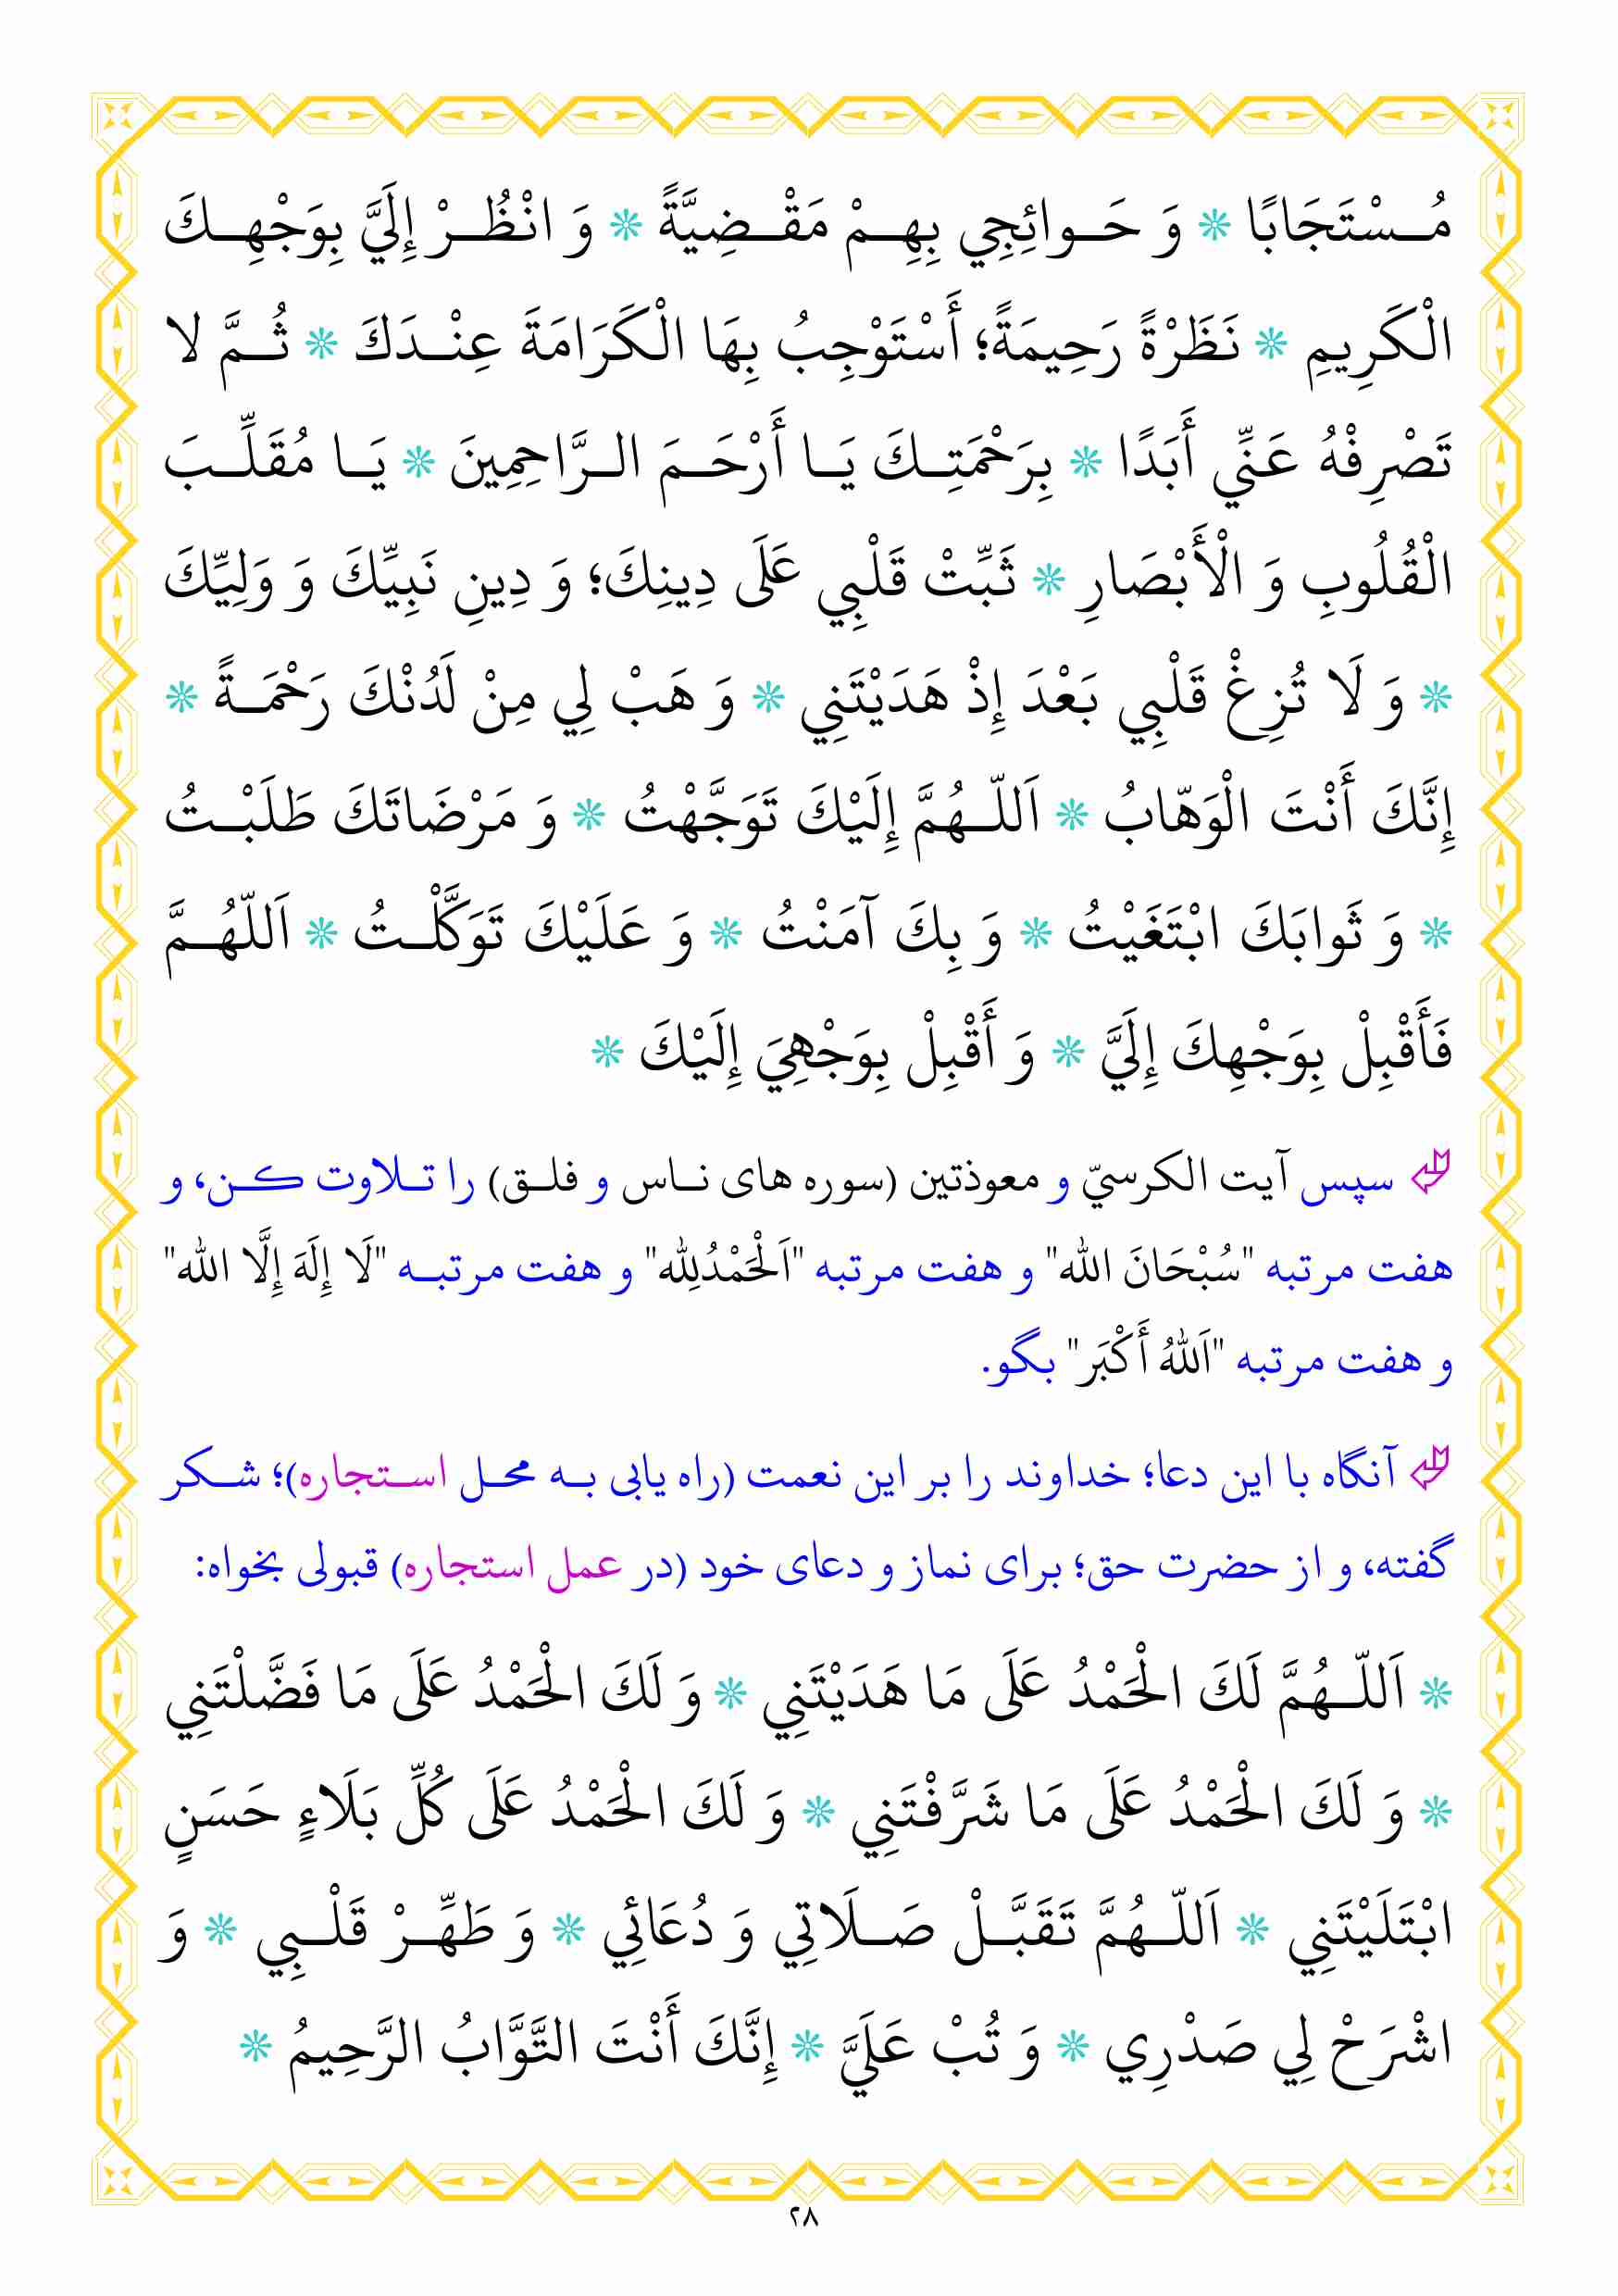 مُسْتَجَابًا * وَ حَوائِجِي بِهِمْ مَقْضِيَّةً * وَ انْظُرْ إِلَيَّ بِوَجْهِكَ
الْكَرِيمِ * نَظَرْةً رَحِيمَةً؛ أَسْتَوْجِبُ بِهَا الْكَرَامَةَ عِنْدَكَ * ثُمَّ لا
تَصْرِفْهُ عَنِّي أَبَدًا * بِرَحْمَتِكَ يَا أَرْحَمَ الرَّاحِمِينَ * يَا مُقَلِّبَ
الْقُلُوبِ وَ الْأَبْصَارِ * ثَبِّتْ قَلْبِي عَلَى دِينِكَ؛ وَ دِينِ نَبِيِّكَ وَ وَلِيِّكَ
* وَ لَا تُزِغْ قَلْبِي بَعْدَ إِذْ هَدَيْتَنِي * وَ هَبْ لِي مِنْ لَدُنْكَ رَحْمَةً *
إِنَّكَ أَنْتَ الْوَهّابُ * اَللّهُمَّ إِلَيْكَ تَوَجَّهْتُ * وَ مَرْضَاتَكَ طَلَبْتُ
* وَ ثَوابَكَ ابْتَغَيْتُ * وَ بِكَ آمَنْتُ * وَ عَلَيْكَ تَوَكَّلْتُ * اَللّهُمَّ
فَأَقْبِلْ بِوَجْهِكَ إِلَيَّ * وَ أَقْبِلْ بِوَجْهِيَ إِلَيْكَ *
سپس آیت الکرسيّ و معوذتین (سوره های ناس و فلق) را تلاوت کن، و
هفت مرتبه "سُبْحَانَ الله" و هفت مرتبه "اَلْحَمْدُلِله" و هفت مرتبه "لَا إِلَهَ إِلَّا الله"
و هفت مرتبه "اَللهُ أَكْبَر" بگو.
آنگاه با این دعا؛ خداوند را بر این نعمت (راه یابی به محل استجاره)؛ شکر
گفته، و از حضرت حق؛ برای نماز و دعای خود (در عمل استجاره) قبولی بخواه:
* اَللّهُمَّ لَكَ الْحَمْدُ عَلَى مَا هَدَيْتَنِي * وَ لَكَ الْحَمْدُ عَلَى مَا فَضَّلْتَنِي
* وَ لَكَ الْحَمْدُ عَلَى مَا شَرَّفْتَنِي * وَ لَكَ الْحَمْدُ عَلَى كُلِّ بَلَاءٍ حَسَنٍ
ابْتَلَيْتَنِي * اَللّهُمَّ تَقَبَّلْ صَلَاتِي وَ دُعَائِي * وَ طَهِّرْ قَلْبِي * وَ
اشْرَحْ لِي صَدْرِي * وَ تُبْ عَلَيَّ * إِنَّكَ أَنْتَ التَّوَّابُ الرَّحِيمُ *
٢٨